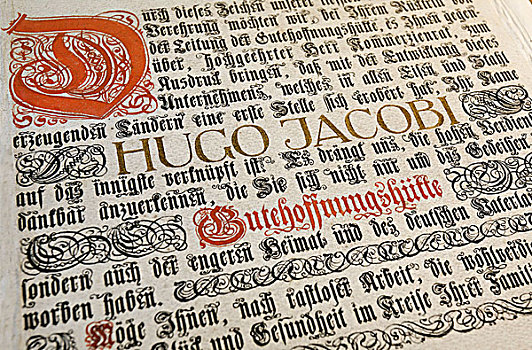 Durch dieses Zeichen unserer
Verehrung möchten wir, der Ihren Rücktritt von
der Leitung der Gutehoffnungshütte, es Ihnen gegen
über, hochgeehrter Herr Kommerzienrat, zum
Ausdruck bringen, daß mit der Entwicklung dieses
Unternehmens, welches in allen Eisen und Stahl
erzeugenden Ländern eine erste Stelle sich erobert hat, Ihr Name
HUGO JACOBI
auf das innigste verknüpft ist. Es drängt uns, die hohen
dankbar anzuerkennen, die Sie sich nicht nur um das Gedeihen
Gutehoffnungshütte
sondern auch der engeren Heimat und des deutschen
worben haben.
Möge Ihnen, nach rastloser Arbeit, die
Glück und Gesundheit im Kreise Ihrer